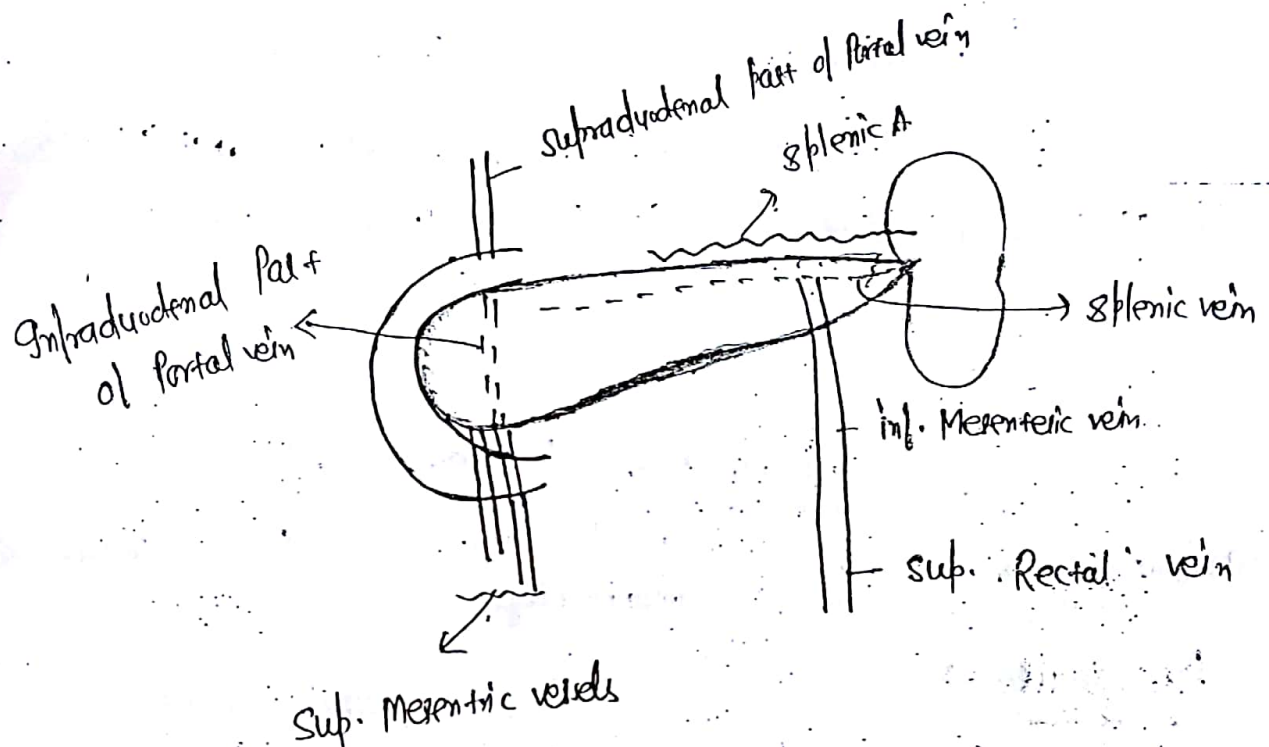 supraduodenal part of Portal vein
splenic A
Infraduodenal Part
of Portal vein
splenic vein
inf. Mesenteric vein.
sup. Rectal vein
Sup. Mesentric vessels